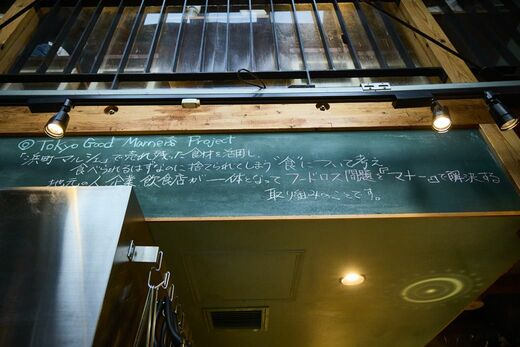 ◎ Tokyo Good Manners Project
「浜町マルシェ」で売れ残った食材を活用し、
食べられるはずなのに捨てられてしまう"食"について考え、
地元の人、企業、飲食店が一体となってフードロス問題を『マナー』で解決する
取り組みのことです。